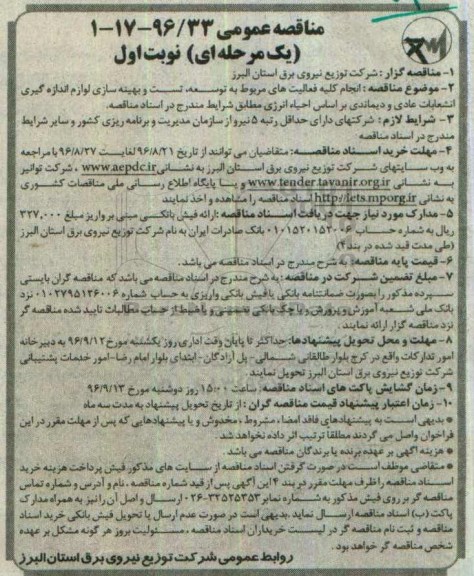 مناقصه عمومی ۹۶/۳۳-۱۷-۱-۱
(یک مرحله ای) نوبت اول
۱- مناقصه گزار : شرکت توزیع نیروی برق استان البرز
۲- موضوع مناقصه : انجام کلیه فعالیت های مربوط به توسعه، تست و بهینه سازی لوازم اندازه گیری
انشعابات عادی و دیماندی بر اساس احیاء انرژی مطابق شرایط مندرج در اسناد مناقصه.
۳- شرایط لازم : شرکتهای دارای حداقل رتبه ۵ نیرو از سازمان مدیریت و برنامه ریزی کشور و سایر شرایط
مندرج در اسناد مناقصه
۴- مهلت خرید اسناد مناقصه: متقاضیان می توانند از تاریخ ۹۶/۸/۲۱ لغایت ۹۶/۸/۲۷ با مراجعه
به وب سایتهای شرکت توزیع نیروی برق استان البرز به نشانی www.aepdc.ir ، شرکت توانیر
به نشانی www.tender.tavanir.org.ir و یا پایگاه اطلاع رسانی ملی مناقصات کشوری
به نشانی http://iets.mporg.ir اسناد مناقصه را مشاهده و اخذ نمایند
۵- مدارک مورد نیاز جهت دریافت اسناد مناقصه :ارائه فیش بانکی مبنی بر واریز مبلغ ۳۲۷,۰۰۰
ریال به شماره حساب ۰۱۰۱۵۲۰۱۵۳۰۰۶ بانک صادرات ایران به نام شرکت توزیع نیروی برق استان البرز
(طی مدت قید شده در بند۴)
۶- قیمت پایه مناقصه: به شرح مندرج در اسناد مناقصه می باشد.
۷- مبلغ تضمین شرکت در مناقصه: به شرح مندرج در اسناد مناقصه می باشد که مناقصه گران بایستی
سپرده مذکور را بصورت ضمانتنامه بانکی یا فیش بانکی واریزی به حساب شماره ۰۱۰۲۷۹۵۱۳۶۰۰۶ نزد
بانک ملی شعبه آموزش و پرورش و یا چک بانکی تضمینی و یا ضبط از حساب مطالبات تایید شده مناقصه گر
نزد مناقصه گزار ارائه نمایند.
۸- مهلت و محل تحویل پیشنهادها: حداکثر تا پایان وقت اداری روز یکشنبه مورخ ۹۶/۹/۱۲ به دبیرخانه
امور تدارکات واقع در کرج بلوار طالقانی شمالی- پل آزادگان- ابتدای بلوار امام رضا- امور خدمات پشتیبانی
شرکت توزیع نیروی برق استان البرز تحویل نمایند.
۹- زمان گشایش پاکت های اسناد مناقصه: ساعت ۱۵:۰۰ روز دوشنبه مورخ ۹۶/۹/۱۳
۱۰- زمان اعتبار پیشنهاد قیمت مناقصه گران : از تاریخ تحویل پیشنهاد به مدت سه ماه
* بدیهی است به پیشنهادهای فاقد امضاء، مشروط ، مخدوش و یا پیشنهادهایی که پس از مهلت مقرر در این
فراخوان واصل می گردند مطلقا ترتیب اثر داده نخواهد شد.
* هزینه آگهی بر عهده برنده یا برندگان مناقصه می باشد
* متقاضی موظف است در صورت گرفتن اسناد مناقصه از سایت های مذکور فیش پرداخت هزینه خرید
اسناد مناقصه را ظرف مهلت مقرر در بند ۴ این آگهی پس از قید شماره مناقصه ، نام و آدرس و شماره تماس
مناقصه گر بر روی فیش مذکور به شماره نمابر ۳۲۵۲۵۳۵۳-۰۲۶ ارسال و اصل آن را نیز به همراه مدارک
پاکت (ب) اسناد مناقصه ارسال نماید .بدیهی است در صورت عدم ارسال یا تحویل فیش بانکی خرید اسناد
مناقصه و ثبت نام مناقصه گر در لیست خریداران اسناد مناقصه ، مسئولیت بروز هر گونه مشکل بر عهده
شخص مناقصه گر خواهد بود.
روابط عمومی شرکت توزیع نیروی برق استان البرز